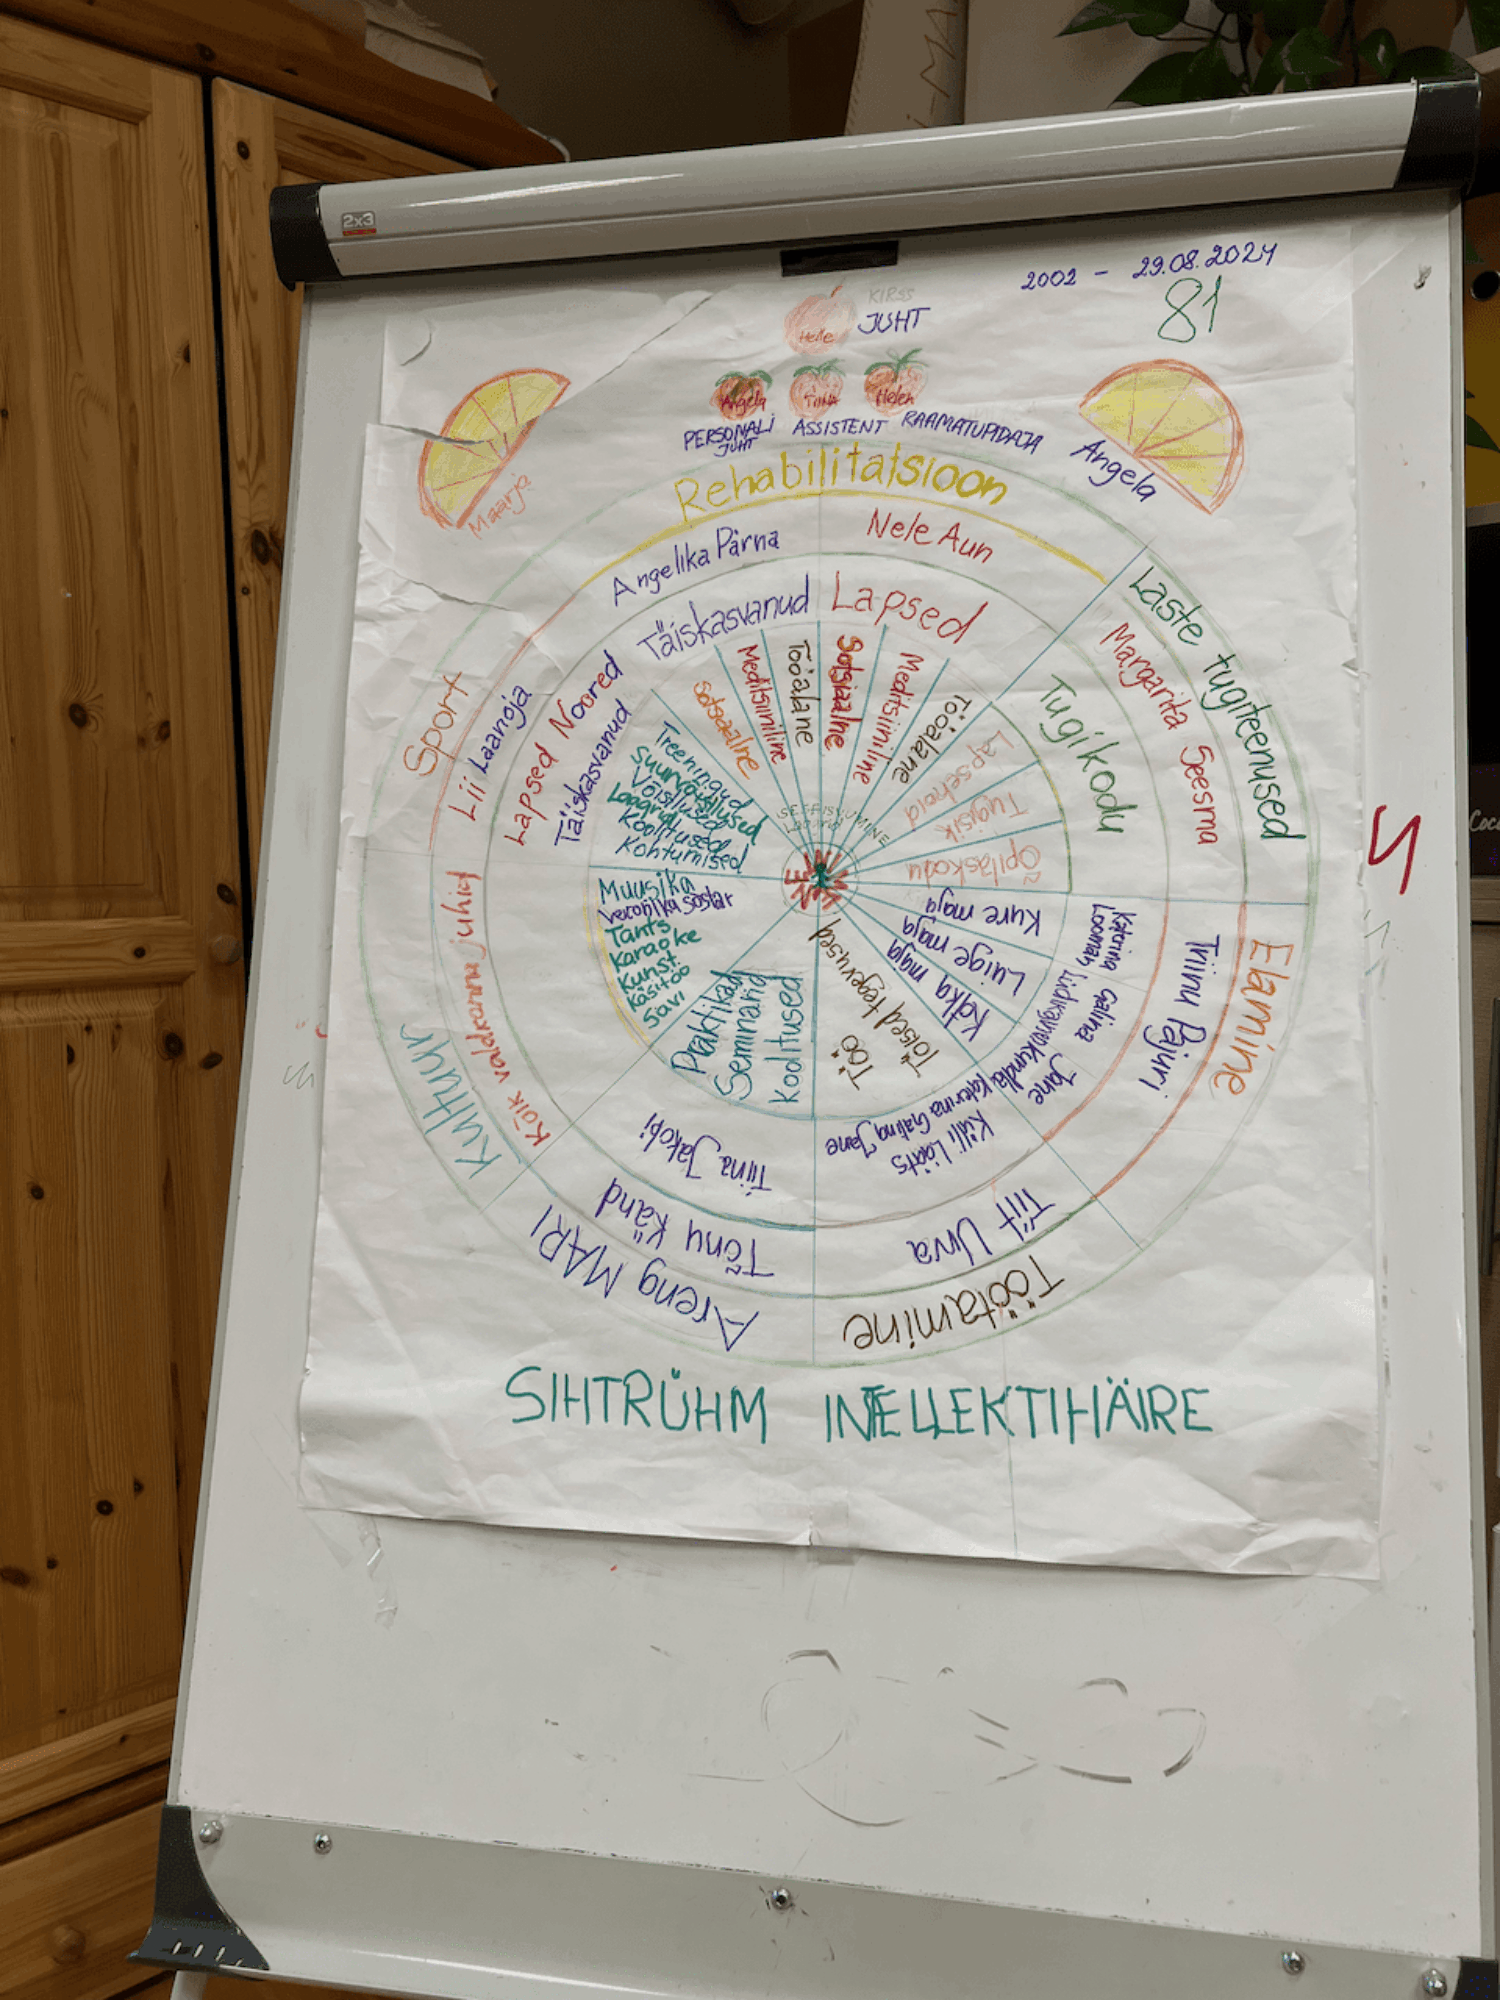 2x3
2002 - 29.08.2024
81
KIRSS
JUHT
Helle
Angela
TIINA
Helen
PERSONALI
JUHT
ASSISTENT
RAAMATUPIDAJA
Maarja
Angela
Rehabilitatsioon
Angelika Pärna
Nele Aun
Täiskasvanud
Lapsed
Sotsiaalne
Meditsiiniline
Tööalane
Sotsiaalne
Meditsiiniline
Tööalane
Laste tugiteenused
Margarita Seesma
Tugikodu
Lapsehoid
Tugiisik
Õpilaskodu
Elamine
Tiinu Pajuri
Katerina
Looman
Galina
Jane
Kure maja
Luige maja
Kolka maja
Töötamine
Tiit Urva
Külli Laats
Katerina Galina Jane
Töö
Töised tegevused
Areng MARI
Tõnu Känd
Tiina Jakobi
Praktikad
Seminarid
Koolitused
Kultuur
Kõik valdkonna juhid
Muusika
Veronika Sostar
Tants
Karaoke
Kunst
Käsitöö
Savi
Sport
Lii Laanoja
Lapsed Noored
Täiskasvanud
Treeningud
Suurvõistlused
Võistlused
Laagrid
Koolitused
Kohtumised
SIHTRÜHM INTELLEKTIHÄIRE